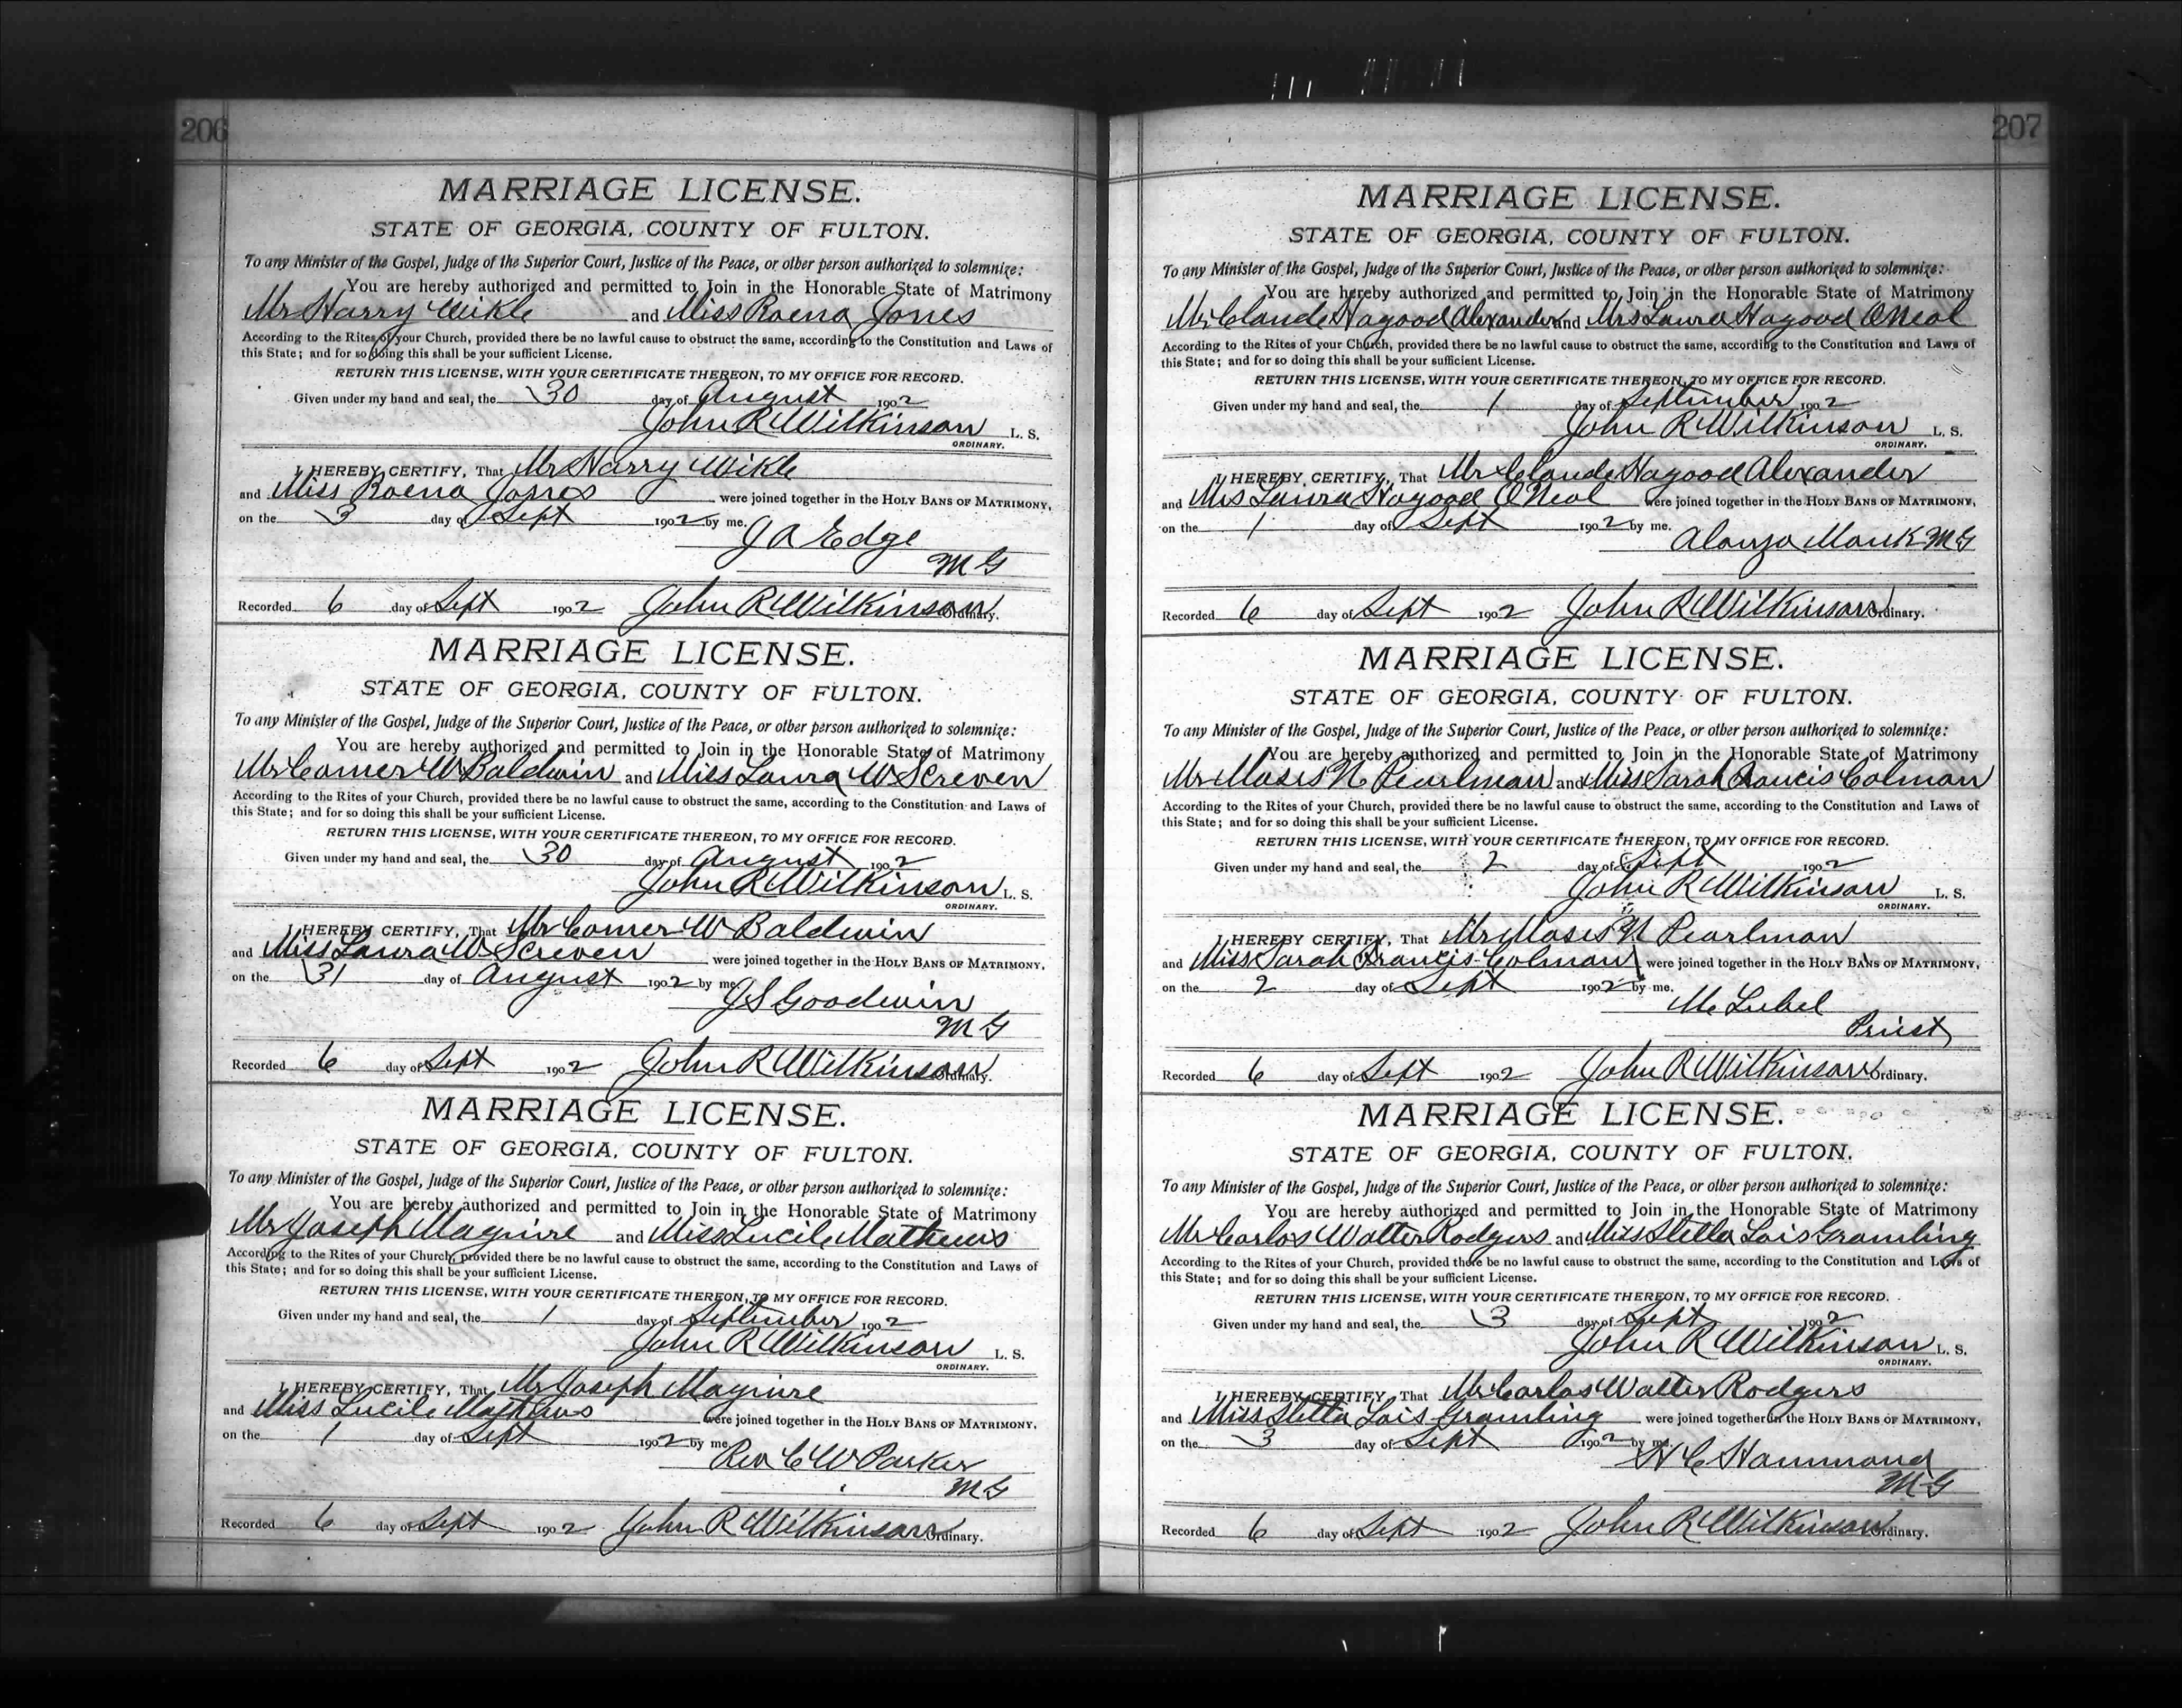 206
MARRIAGE LICENSE.
STATE OF GEORGIA, COUNTY OF FULTON.
To any Minister of the Gospel, Judge of the Superior Court, Justice of the Peace, or other person authorized to solemnize:
You are hereby authorized and permitted to Join in the Honorable State of Matrimony
Mr Harry Wikle and Miss Roena Jones
According to the Rites of your Church, provided there be no lawful cause to obstruct the same, according to the Constitution and Laws of
this State; and for so doing this shall be your sufficient License.
RETURN THIS LICENSE, WITH YOUR CERTIFICATE THEREON, TO MY OFFICE FOR RECORD.
Given under my hand and seal, the 30 day of August 1902
John R Wilkinson L. S.
ORDINARY.
I HEREBY CERTIFY, That Mr Harry Wikle
and Miss Roena Jones were joined together in the HOLY BANS OF MATRIMONY,
on the 3 day of Sept 1902 by me.
J A Edge
M G
Recorded 6 day of Sept 1902 John R Wilkinson Ordinary.
MARRIAGE LICENSE.
STATE OF GEORGIA, COUNTY OF FULTON.
To any Minister of the Gospel, Judge of the Superior Court, Justice of the Peace, or other person authorized to solemnize:
You are hereby authorized and permitted to Join in the Honorable State of Matrimony
Mr Comer W Baldwin and Miss Laura W Screven
According to the Rites of your Church, provided there be no lawful cause to obstruct the same, according to the Constitution and Laws of
this State; and for so doing this shall be your sufficient License.
RETURN THIS LICENSE, WITH YOUR CERTIFICATE THEREON, TO MY OFFICE FOR RECORD.
Given under my hand and seal, the 30 day of August 1902
John R Wilkinson L. S.
ORDINARY.
I HEREBY CERTIFY, That Mr Comer W Baldwin
and Miss Laura W Screven were joined together in the HOLY BANS OF MATRIMONY,
on the 31 day of August 1902 by me.
J S Goodwin
M G
Recorded 6 day of Sept 1902 John R Wilkinson Ordinary.
MARRIAGE LICENSE.
STATE OF GEORGIA, COUNTY OF FULTON.
To any Minister of the Gospel, Judge of the Superior Court, Justice of the Peace, or other person authorized to solemnize:
You are hereby authorized and permitted to Join in the Honorable State of Matrimony
Mr Joseph Maguire and Miss Lucile Mathews
According to the Rites of your Church, provided there be no lawful cause to obstruct the same, according to the Constitution and Laws of
this State; and for so doing this shall be your sufficient License.
RETURN THIS LICENSE, WITH YOUR CERTIFICATE THEREON, TO MY OFFICE FOR RECORD.
Given under my hand and seal, the 1 day of September 1902
John R Wilkinson L. S.
ORDINARY.
I HEREBY CERTIFY, That Mr Joseph Maguire
and Miss Lucile Mathews were joined together in the HOLY BANS OF MATRIMONY,
on the 1 day of Sept 1902 by me
Rev C W Parker
M G
Recorded 6 day of Sept 1902 John R Wilkinson Ordinary.
207
MARRIAGE LICENSE.
STATE OF GEORGIA, COUNTY OF FULTON.
To any Minister of the Gospel, Judge of the Superior Court, Justice of the Peace, or other person authorized to solemnize:
You are hereby authorized and permitted to Join in the Honorable State of Matrimony
Mr Claude Hagood Alexander and Mrs Laura Hagood ONeal
According to the Rites of your Church, provided there be no lawful cause to obstruct the same, according to the Constitution and Laws of
this State; and for so doing this shall be your sufficient License.
RETURN THIS LICENSE, WITH YOUR CERTIFICATE THEREON, TO MY OFFICE FOR RECORD.
Given under my hand and seal, the 1 day of September 1902
John R Wilkinson L. S.
ORDINARY.
I HEREBY CERTIFY, That Mr Claude Hagood Alexander
and Mrs Laura Hagood ONeal were joined together in the HOLY BANS OF MATRIMONY,
on the 1 day of Sept 1902 by me.
Alonzo Monk M G
Recorded 6 day of Sept 1902 John R Wilkinson Ordinary.
MARRIAGE LICENSE.
STATE OF GEORGIA, COUNTY OF FULTON.
To any Minister of the Gospel, Judge of the Superior Court, Justice of the Peace, or other person authorized to solemnize:
You are hereby authorized and permitted to Join in the Honorable State of Matrimony
Mr Moses N Pearlman and Miss Sarah Francis Colman
According to the Rites of your Church, provided there be no lawful cause to obstruct the same, according to the Constitution and Laws of
this State; and for so doing this shall be your sufficient License.
RETURN THIS LICENSE, WITH YOUR CERTIFICATE THEREON, TO MY OFFICE FOR RECORD.
Given under my hand and seal, the 2 day of Sept 1902
John R Wilkinson L. S.
ORDINARY.
I HEREBY CERTIFY, That Mr Moses N Pearlman
and Miss Sarah Francis Colman were joined together in the HOLY BANS OF MATRIMONY,
on the 2 day of Sept 1902 by me.
M Lubel
Priest
Recorded 6 day of Sept 1902 John R Wilkinson Ordinary.
MARRIAGE LICENSE.
STATE OF GEORGIA, COUNTY OF FULTON.
To any Minister of the Gospel, Judge of the Superior Court, Justice of the Peace, or other person authorized to solemnize:
You are hereby authorized and permitted to Join in the Honorable State of Matrimony
Mr Carlos Walter Rodgers and Miss Stella Lois Gramling
According to the Rites of your Church, provided there be no lawful cause to obstruct the same, according to the Constitution and Laws of
this State; and for so doing this shall be your sufficient License.
RETURN THIS LICENSE, WITH YOUR CERTIFICATE THEREON, TO MY OFFICE FOR RECORD.
Given under my hand and seal, the 3 day of Sept 1902
John R Wilkinson L. S.
ORDINARY.
I HEREBY CERTIFY, That Mr Carlos Walter Rodgers
and Miss Stella Lois Gramling were joined together in the HOLY BANS OF MATRIMONY,
on the 3 day of Sept 1902 by me
H C Hammond
M G
Recorded 6 day of Sept 1902 John R Wilkinson Ordinary.